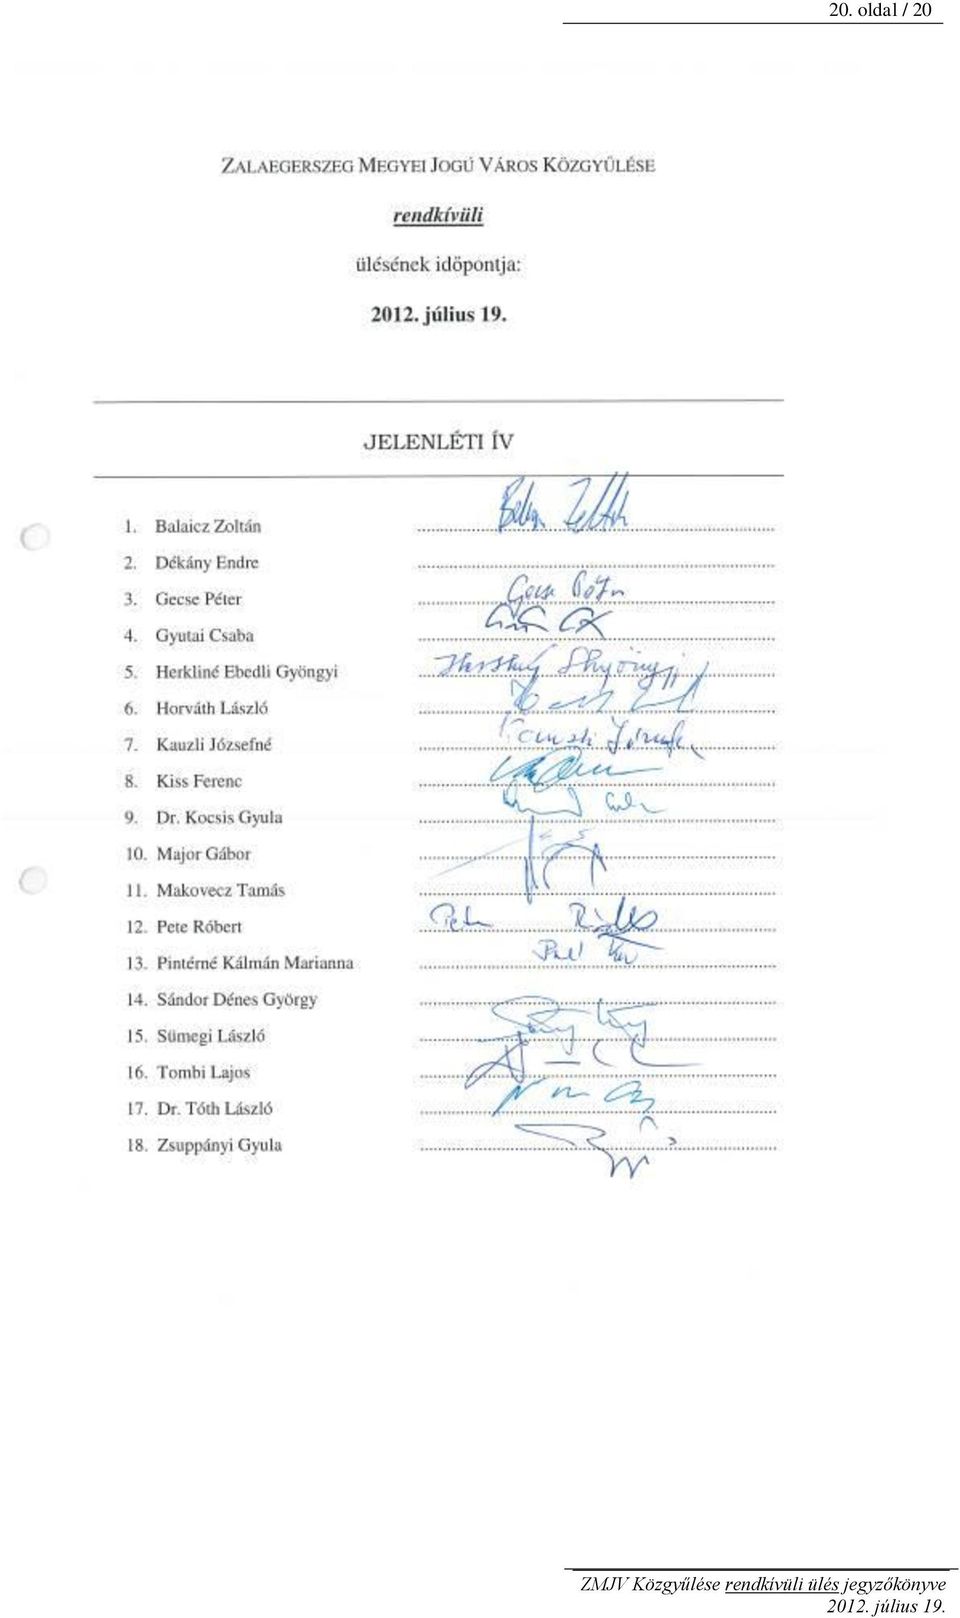 20. oldal / 20
ZALAEGERSZEG MEGYEI JOGÚ VÁROS KÖZGYŰLÉSE
rendkívüli
ülésének időpontja:
2012. július 19.
JELENLÉTI ÍV
1. Balaicz Zoltán
2. Dékány Endre
3. Gecse Péter Gecse Péter
4. Gyutai Csaba
5. Herkliné Ebedli Gyöngyi
6. Horváth László
7. Kauzli Józsefné
8. Kiss Ferenc
9. Dr. Kocsis Gyula
10. Major Gábor
11. Makovecz Tamás
12. Pete Róbert Pete
13. Pintérné Kálmán Marianna
14. Sándor Dénes György
15. Sümegi László
16. Tombi Lajos
17. Dr. Tóth László
18. Zsuppányi Gyula
ZMJV Közgyűlése rendkívüli ülés jegyzőkönyve
2012. július 19.